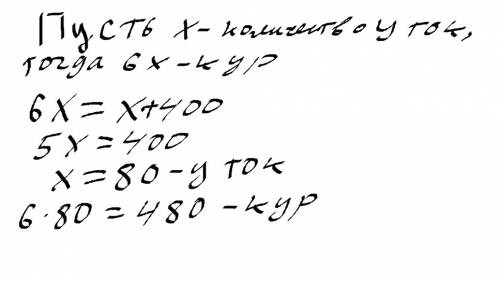 Пусть x - количество уток,
тогда 6x - кур
6x = x+400
5x = 400
x = 80 - уток
6·80 = 480 - кур